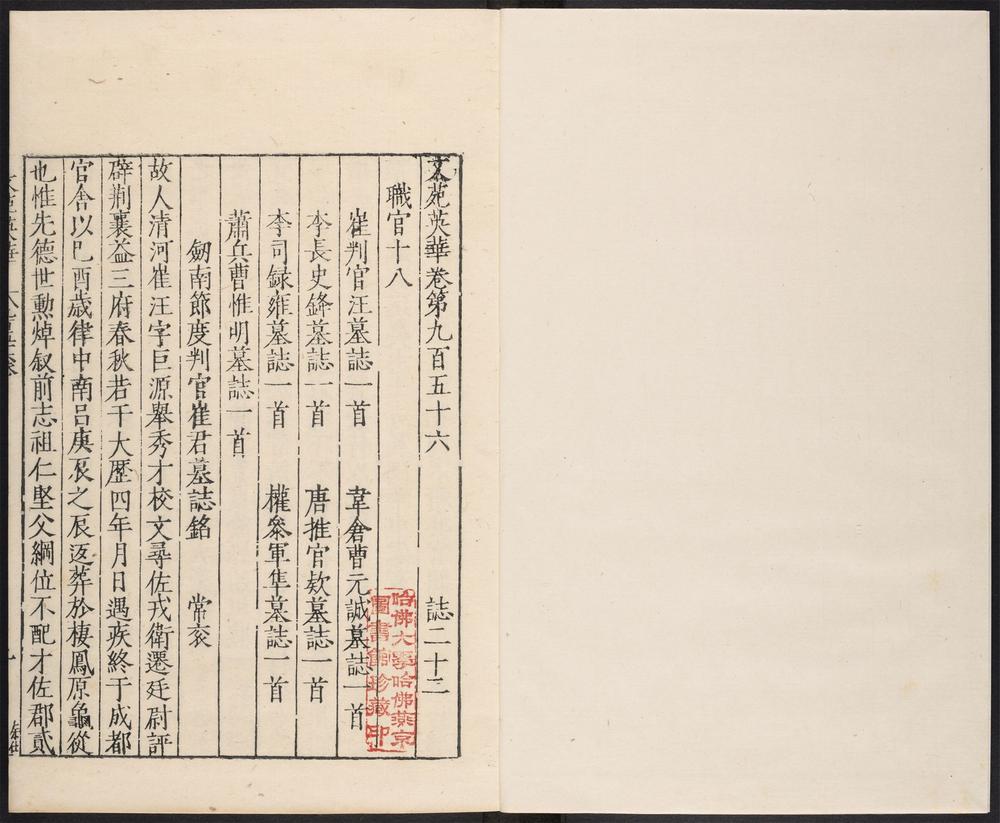 文苑英華卷第九百五十六 誌二十三
職官十八
崔判官汪墓誌一首 韋倉曹元誠墓誌一首
李長史鋒墓誌一首 唐推官欵墓誌一首
李司録雍墓誌一首 權叅軍隼墓誌一首
蕭兵曹惟明墓誌一首
劒南節度判官崔君墓誌銘 常衮
故人清河崔汪字巨源舉秀才校文尋佐戎衛遷廷尉評
辟荆襄益三府春秋若干大歷四年月日遇疾終于成都
官舍以巳酉歳律中南吕庚辰之辰返葬於棲鳳原龜從
也惟先德世勲焯叙前志祖仁堅父綱位不配才佐郡貳
哈佛大學哈佛燕京
圖書館珍藏印